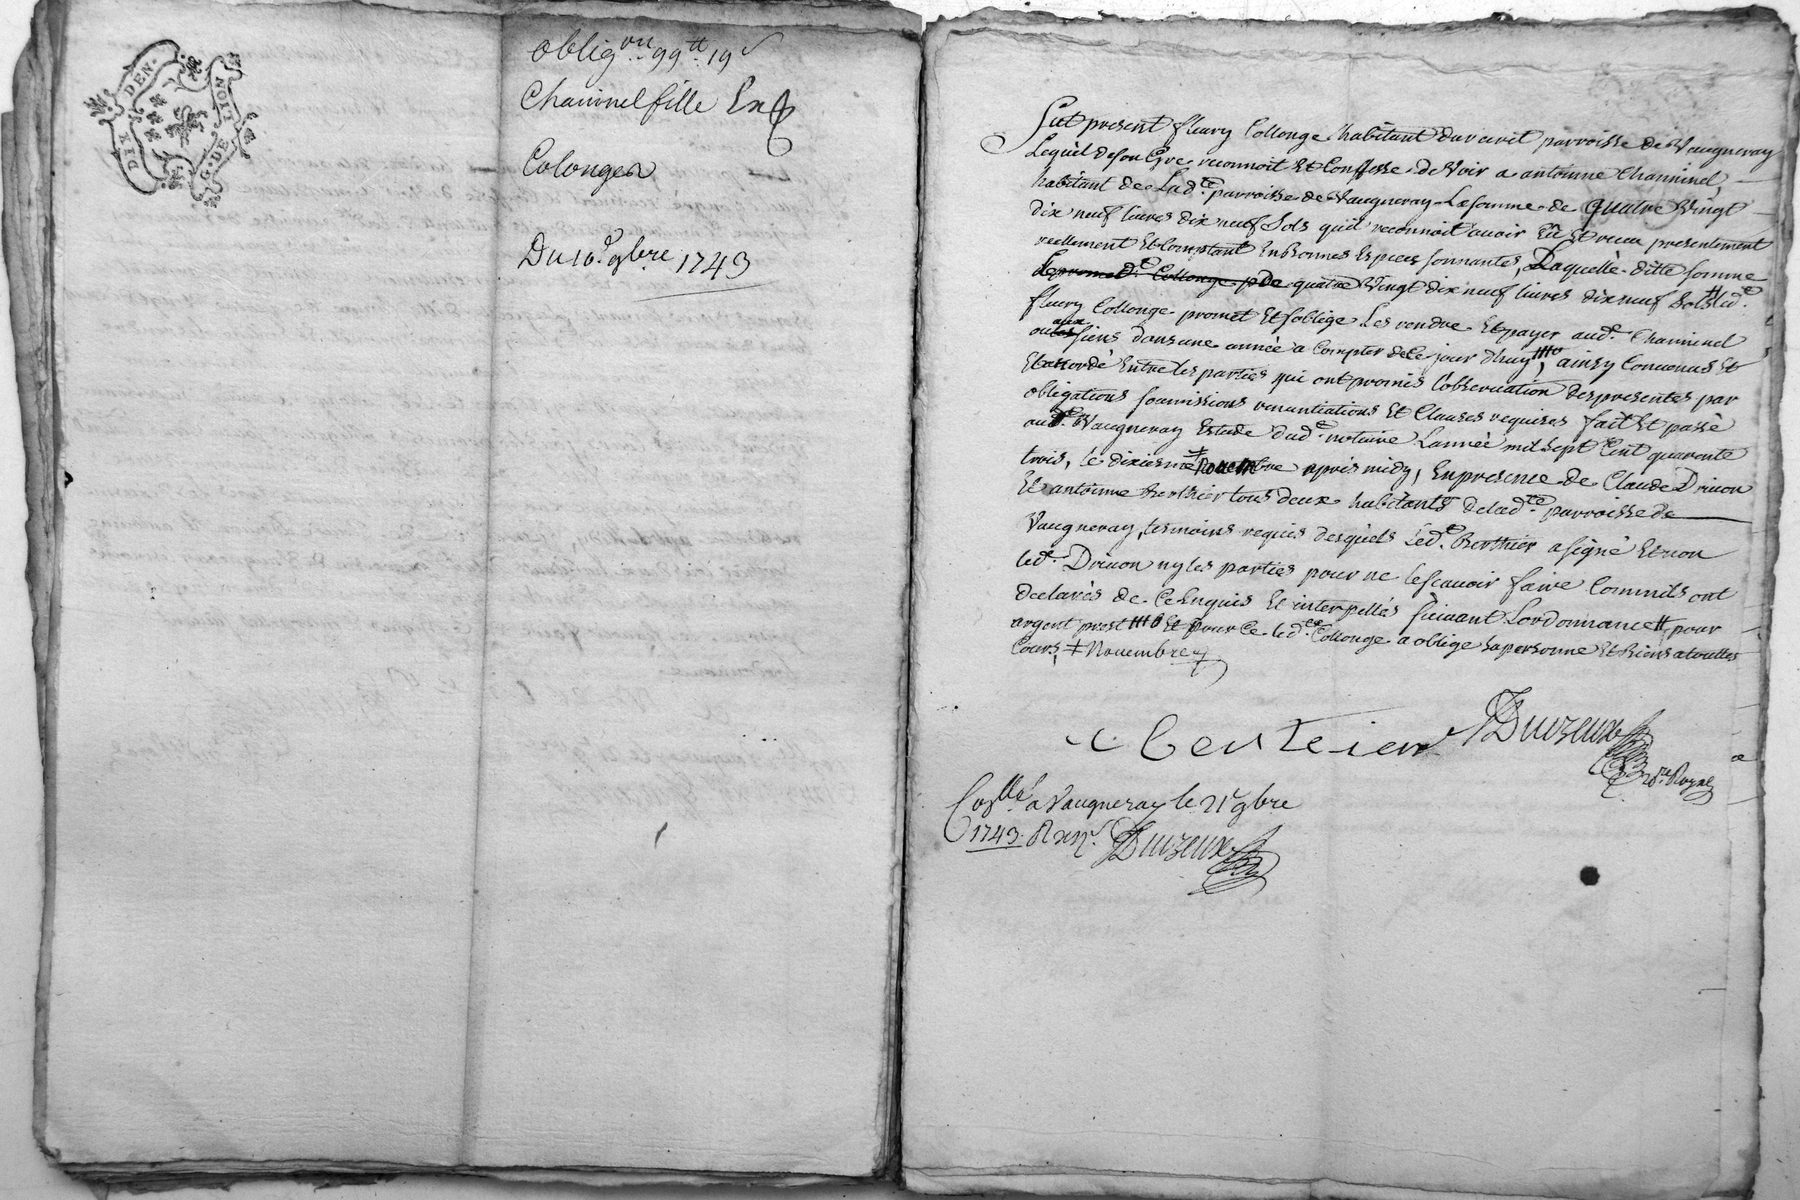 DIX DEN.
G. DE LYON
oblig.on 99tt 19s
Channel fille En
Colonges
Du 10e 9bre 1743
Fut present fleury Collonge habitant du parroisse de Vaugneray
Lequel de son Gre reconnoit Et Confesse deVoir a antoinne Channinel,
habitant de Lad.te parroisse de Vaugneray La somme de quatre Vingt
dix neuf livres dix neuf Sols qu'il reconnoit avoir Eü Et receu presentement
reellement Et Comptant En bonnes Especes sonnantes, Laquelle ditte somme
de quatre Vingt dix neuf livres dix neuf Sols led.t
fleury Collonge promet Et soblige Les rendre Et payer aud.t Channinel
ou aux siens dans une année a Compter de Ce jour d'huy, ainsy Convenus Et
accordé Entre les parties qui ont promis l'observation des presentes par
obligations soumissions renuntiations Et Clauses requises fait Et passé
aud.t Vaugneray Estude dud.t notaire L'année mil sept Cent quarente
trois, le dixiesme novembre apres midy, En presence de Claude Drivon
Et antoinne Berthier tous deux habitants de lad.te parroisse de
Vaugneray, tesmoins requis desquels Led.t Berthier a signé Et non
led.t Drivon ny les parties pour ne le scavoir faire Comm'ils ont
declarés de Ce Enquis Et interpellés suivant Lordonnance # pour
argent prest Et pour Ce led.t Collonge a obligé sa personne Et biens a touttes
Cours, ‡ Novembre
a berteier Duvzeux
n.re Royal
Con.llé a Vaugneray le 21e 9bre
1743. R Duvzeux